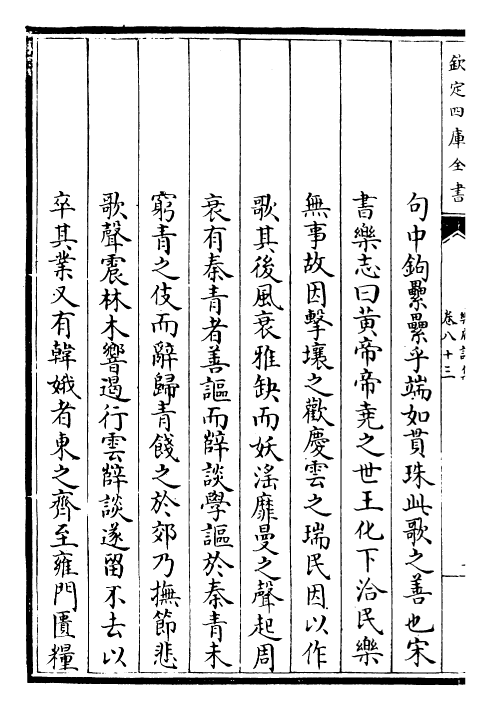 欽定四庫全書
卷八十三
句中鉤纍纍乎端如貫珠此歌之善也宋
書樂志曰黄帝帝堯之世王化下洽民樂
無事故因擊壤之歡慶雲之瑞民因以作
歌其後風衰雅缺而妖滛靡曼之聲起周
衰有秦青者善謳而薛談學謳於秦青未
窮青之伎而辭歸青餞之於郊乃撫節悲
歌聲震林木響遏行雲薛談遂留不去以
卒其業又有韓娥者東之齊至雍門匱糧